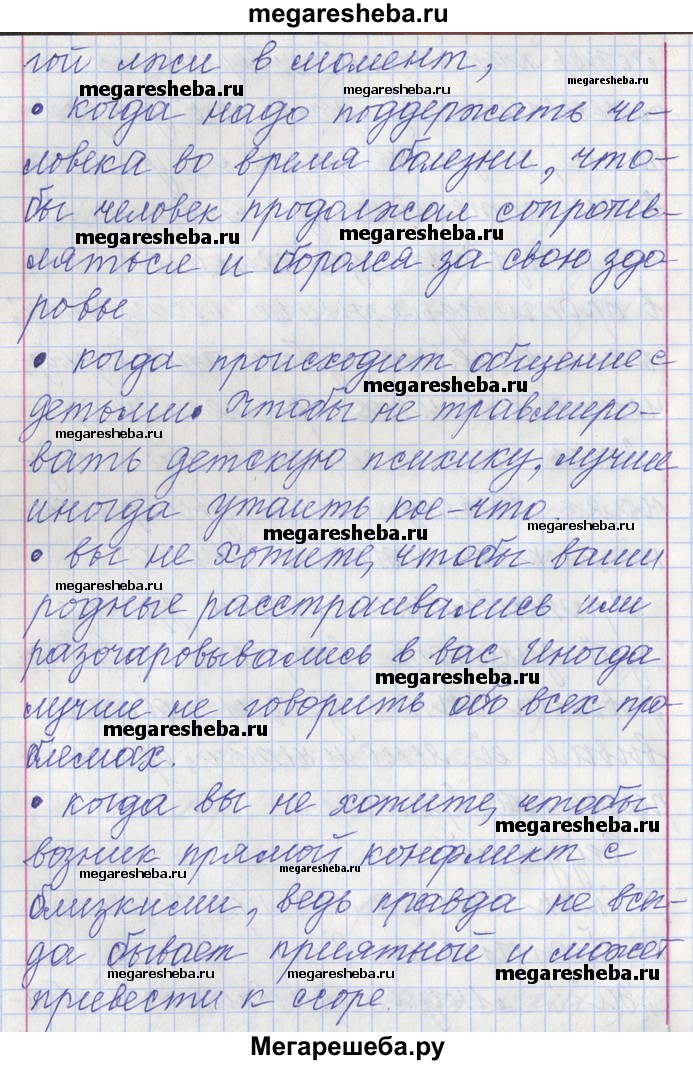 megaresheba.ru
гой лжи в момент,
megaresheba.ru megaresheba.ru
• когда надо поддержать че-
ловека во время болезни, что-
бы человек продолжал сопротив-
megaresheba.ru megaresheba.ru
ляться и боролся за свою здо
ровье
• когда происходит общение с
megaresheba.ru
детьми. Чтобы не травмиро-
megaresheba.ru
вать детскую психику, лучше
иногда утаить кое-что.
megaresheba.ru megaresheba.ru
• вы не хотите, чтобы ваши
megaresheba.ru
родные расстраивались или
разочаровывались в вас. Иногда
megaresheba.ru
лучше не говорить обо всех про-
megaresheba.ru
блемах.
• когда вы не хотите, чтобы
megaresheba.ru
возник прямой конфликт с
megaresheba.ru megaresheba.ru
близкими, ведь правда не всег-
да бывает приятной и может
megaresheba.ru megaresheba.ru megaresheba.ru
привести к ссоре.
Мегарешеба.ру